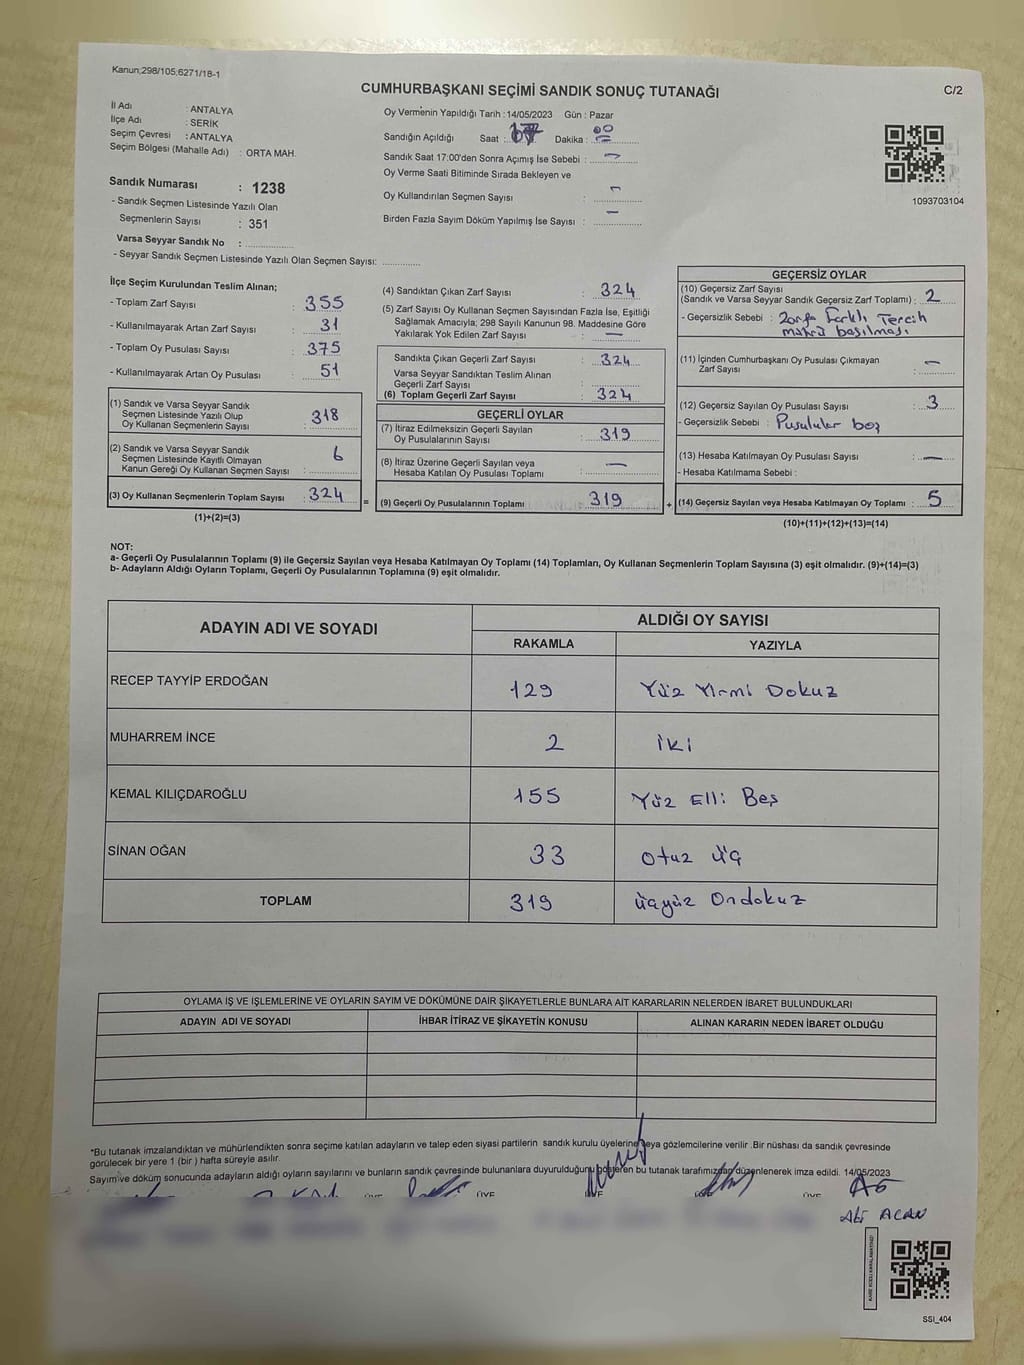 Kanun;298/105;6271/18-1
CUMHURBAŞKANI SEÇİMİ SANDIK SONUÇ TUTANAĞI
C/2
İl Adı : ANTALYA
İlçe Adı : SERİK
Seçim Çevresi : ANTALYA
Seçim Bölgesi (Mahalle Adı) : ORTA MAH.
Sandık Numarası : 1238
- Sandık Seçmen Listesinde Yazılı Olan
Seçmenlerin Sayısı : 351
Varsa Seyyar Sandık No :
- Seyyar Sandık Seçmen Listesinde Yazılı Olan Seçmen Sayısı:
Oy Vermenin Yapıldığı Tarih : 14/05/2023 Gün : Pazar
Sandığın Açıldığı Saat : 17 Dakika : 00
Sandık Saat 17:00'den Sonra Açımış İse Sebebi : -
Oy Verme Saati Bitiminde Sırada Bekleyen ve
Oy Kullandırılan Seçmen Sayısı : -
Birden Fazla Sayım Döküm Yapılmış İse Sayısı : -
1093703104
İlçe Seçim Kurulundan Teslim Alınan;
- Toplam Zarf Sayısı : 355
- Kullanılmayarak Artan Zarf Sayısı : 31
- Toplam Oy Pusulası Sayısı : 375
- Kullanılmayarak Artan Oy Pusulası : 51
(1) Sandık ve Varsa Seyyar Sandık
Seçmen Listesinde Yazılı Olup
Oy Kullanan Seçmenlerin Sayısı : 318
(2) Sandık ve Varsa Seyyar Sandık
Seçmen Listesinde Kayıtlı Olmayan
Kanun Gereği Oy Kullanan Seçmen Sayısı : 6
(3) Oy Kullanan Seçmenlerin Toplam Sayısı : 324
(1)+(2)=(3)
=
(4) Sandıktan Çıkan Zarf Sayısı : 324
(5) Zarf Sayısı Oy Kullanan Seçmen Sayısından Fazla İse, Eşitliği
Sağlamak Amacıyla; 298 Sayılı Kanunun 98. Maddesine Göre
Yakılarak Yok Edilen Zarf Sayısı : -
Sandıkta Çıkan Geçerli Zarf Sayısı : 324
Varsa Seyyar Sandıktan Teslim Alınan
Geçerli Zarf Sayısı :
(6) Toplam Geçerli Zarf Sayısı : 324
GEÇERLİ OYLAR
(7) İtiraz Edilmeksizin Geçerli Sayılan
Oy Pusulalarının Sayısı : 319
(8) İtiraz Üzerine Geçerli Sayılan veya
Hesaba Katılan Oy Pusulası Toplamı : -
(9) Geçerli Oy Pusulalarının Toplamı : 319
+
GEÇERSİZ OYLAR
(10) Geçersiz Zarf Sayısı
(Sandık ve Varsa Seyyar Sandık Geçersiz Zarf Toplamı) : 2
- Geçersizlik Sebebi : Zarfa Farklı Tercih
mührü basılması
(11) İçinden Cumhurbaşkanı Oy Pusulası Çıkmayan
Zarf Sayısı : -
(12) Geçersiz Sayılan Oy Pusulası Sayısı : 3
- Geçersizlik Sebebi : Pusulular boş
(13) Hesaba Katılmayan Oy Pusulası Sayısı : -
- Hesaba Katılmama Sebebi :
(14) Geçersiz Sayılan veya Hesaba Katılmayan Oy Toplamı : 5
(10)+(11)+(12)+(13)=(14)
NOT:
a- Geçerli Oy Pusulalarının Toplamı (9) ile Geçersiz Sayılan veya Hesaba Katılmayan Oy Toplamı (14) Toplamları, Oy Kullanan Seçmenlerin Toplam Sayısına (3) eşit olmalıdır. (9)+(14)=(3)
b- Adayların Aldığı Oyların Toplamı, Geçerli Oy Pusulalarının Toplamına (9) eşit olmalıdır.
ADAYIN ADI VE SOYADI ALDIĞI OY SAYISI
RAKAMLA YAZIYLA
RECEP TAYYİP ERDOĞAN 129 Yüz Yirmi Dokuz
MUHARREM İNCE 2 iki
KEMAL KILIÇDAROĞLU 155 Yüz Elli Beş
SİNAN OĞAN 33 Otuz üç
TOPLAM 319 üçyüz Ondokuz
OYLAMA İŞ VE İŞLEMLERİNE VE OYLARIN SAYIM VE DÖKÜMÜNE DAİR ŞİKAYETLERLE BUNLARA AİT KARARLARIN NELERDEN İBARET BULUNDUKLARI
ADAYIN ADI VE SOYADI İHBAR İTİRAZ VE ŞİKAYETİN KONUSU ALINAN KARARIN NEDEN İBARET OLDUĞU
*Bu tutanak imzalandıktan ve mühürlendikten sonra seçime katılan adayların ve talep eden siyasi partilerin sandık kurulu üyelerine veya gözlemcilerine verilir .Bir nüshası da sandık çevresinde
görülecek bir yere 1 (bir ) hafta süreyle asılır.
Sayım ve döküm sonucunda adayların aldığı oyların sayılarını ve bunların sandık çevresinde bulunanlara duyurulduğunu gösteren bu tutanak tarafımızdan düzenlenerek imza edildi. 14/05/2023
ÜYE ÜYE ÜYE ÜYE
Ali ACAN
SSI_404